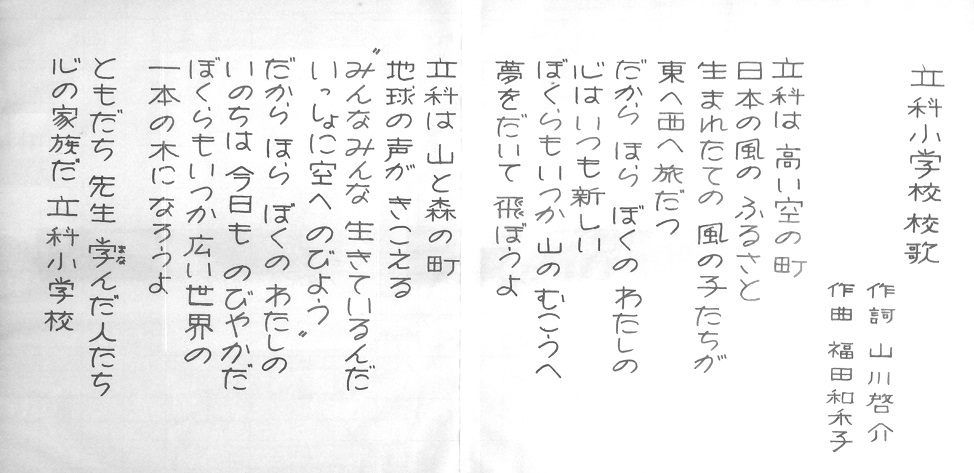 立科小学校校歌
作詞 山川啓介
作曲 福田和禾子
立科は 高い空の町
日本の風の ふるさと
生まれたての 風の子たちが
東へ西へ 旅だつ
だから ほら ぼくの わたしの
心は いつも 新しい
ぼくらも いつか 山の むこうへ
夢を だいて 飛ぼうよ
立科は 山と森の町
地球の声が きこえる
“みんな みんな 生きて いるんだ
いっしょに 空へ のびよう”
だから ほら ぼくの わたしの
いのちは 今日も のびやかだ
ぼくらも いつか 広い世界の
一本の木に なろうよ
ともだち 先生 学んだ人たち
まな
心の家族だ 立科小学校